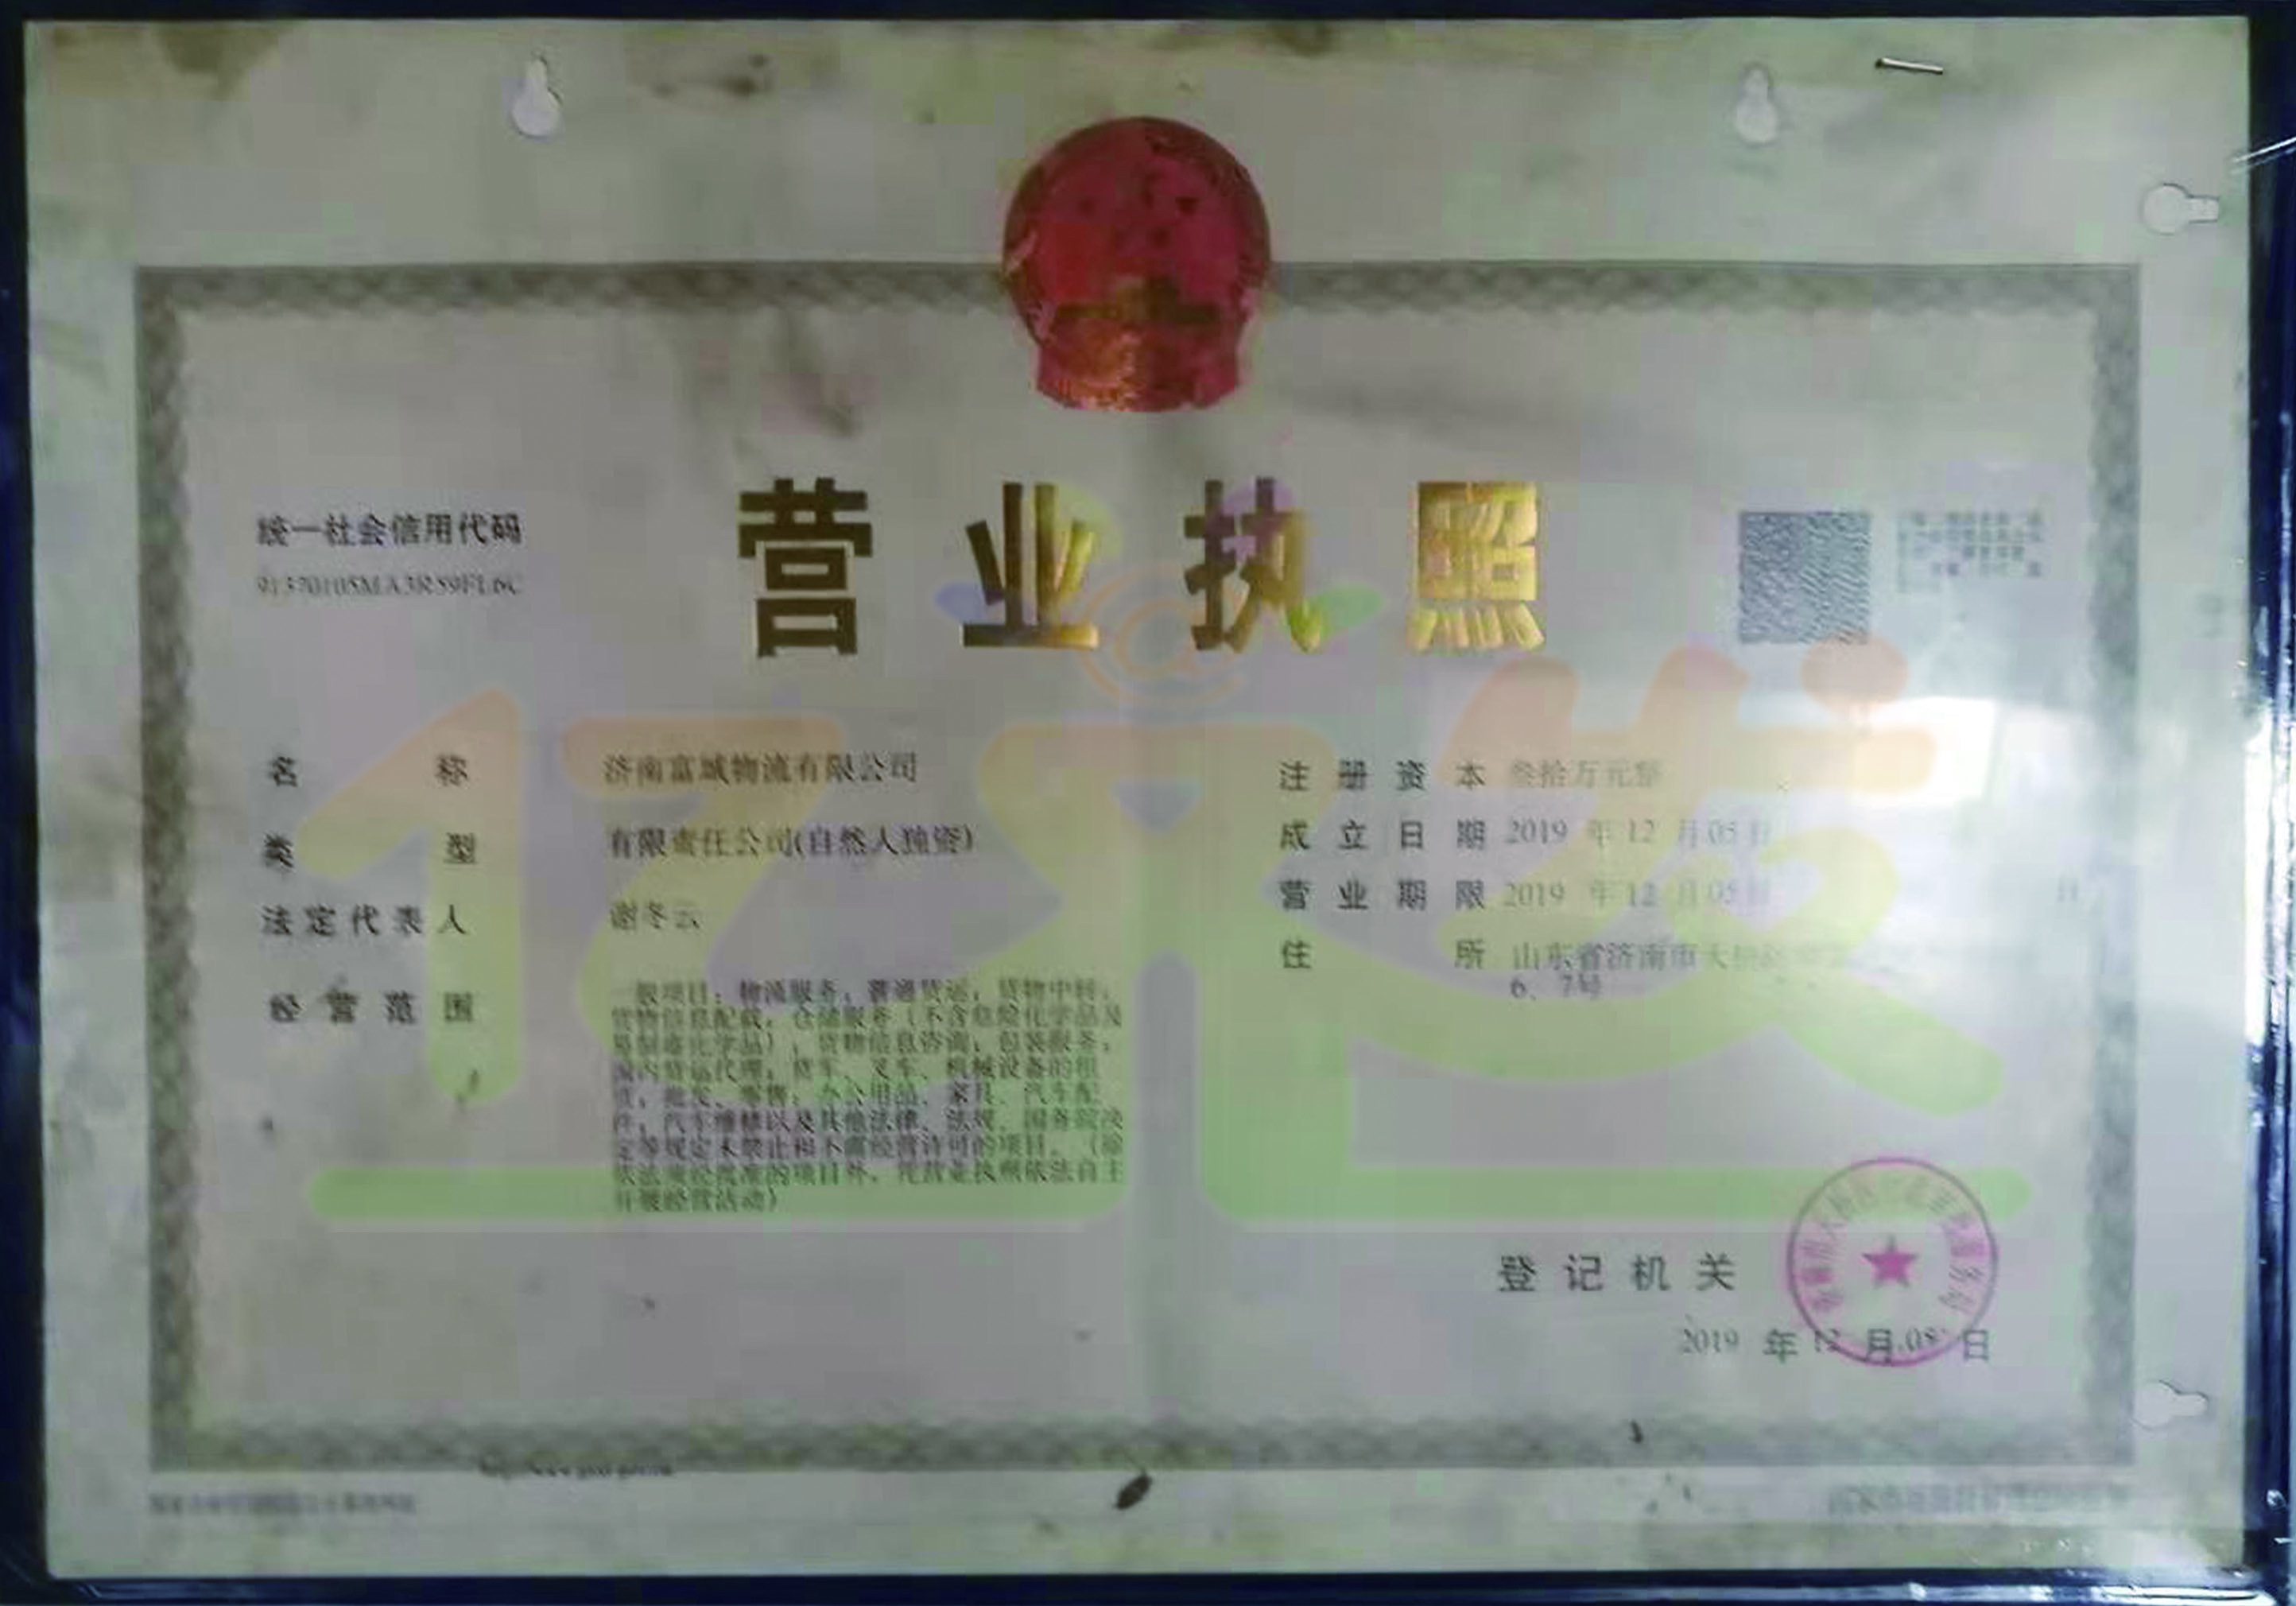 营业执照
统一社会信用代码
91370105MA3R59FL6C
名称 济南富域物流有限公司
类型 有限责任公司(自然人独资)
法定代表人 谢冬云
经营范围 一般项目：物流服务；普通货运；货物中转；
货物信息配载；仓储服务（不含危险化学品及
易制毒化学品）；货物信息咨询；包装服务；
国内货运代理；货车、叉车、机械设备的租
赁；批发、零售：办公用品、家具、汽车配
件；汽车维修以及其他法律、法规、国务院决
定等规定未禁止和不需经营许可的项目。（除
依法须经批准的项目外，凭营业执照依法自主
开展经营活动）
注册资本 叁拾万元整
成立日期 2019 年 12 月 05 日
营业期限 2019 年 12 月 05 日 日
住所 山东省济南市天桥区
6、7号
登记机关
2019 年 12 月 05 日
亿采发